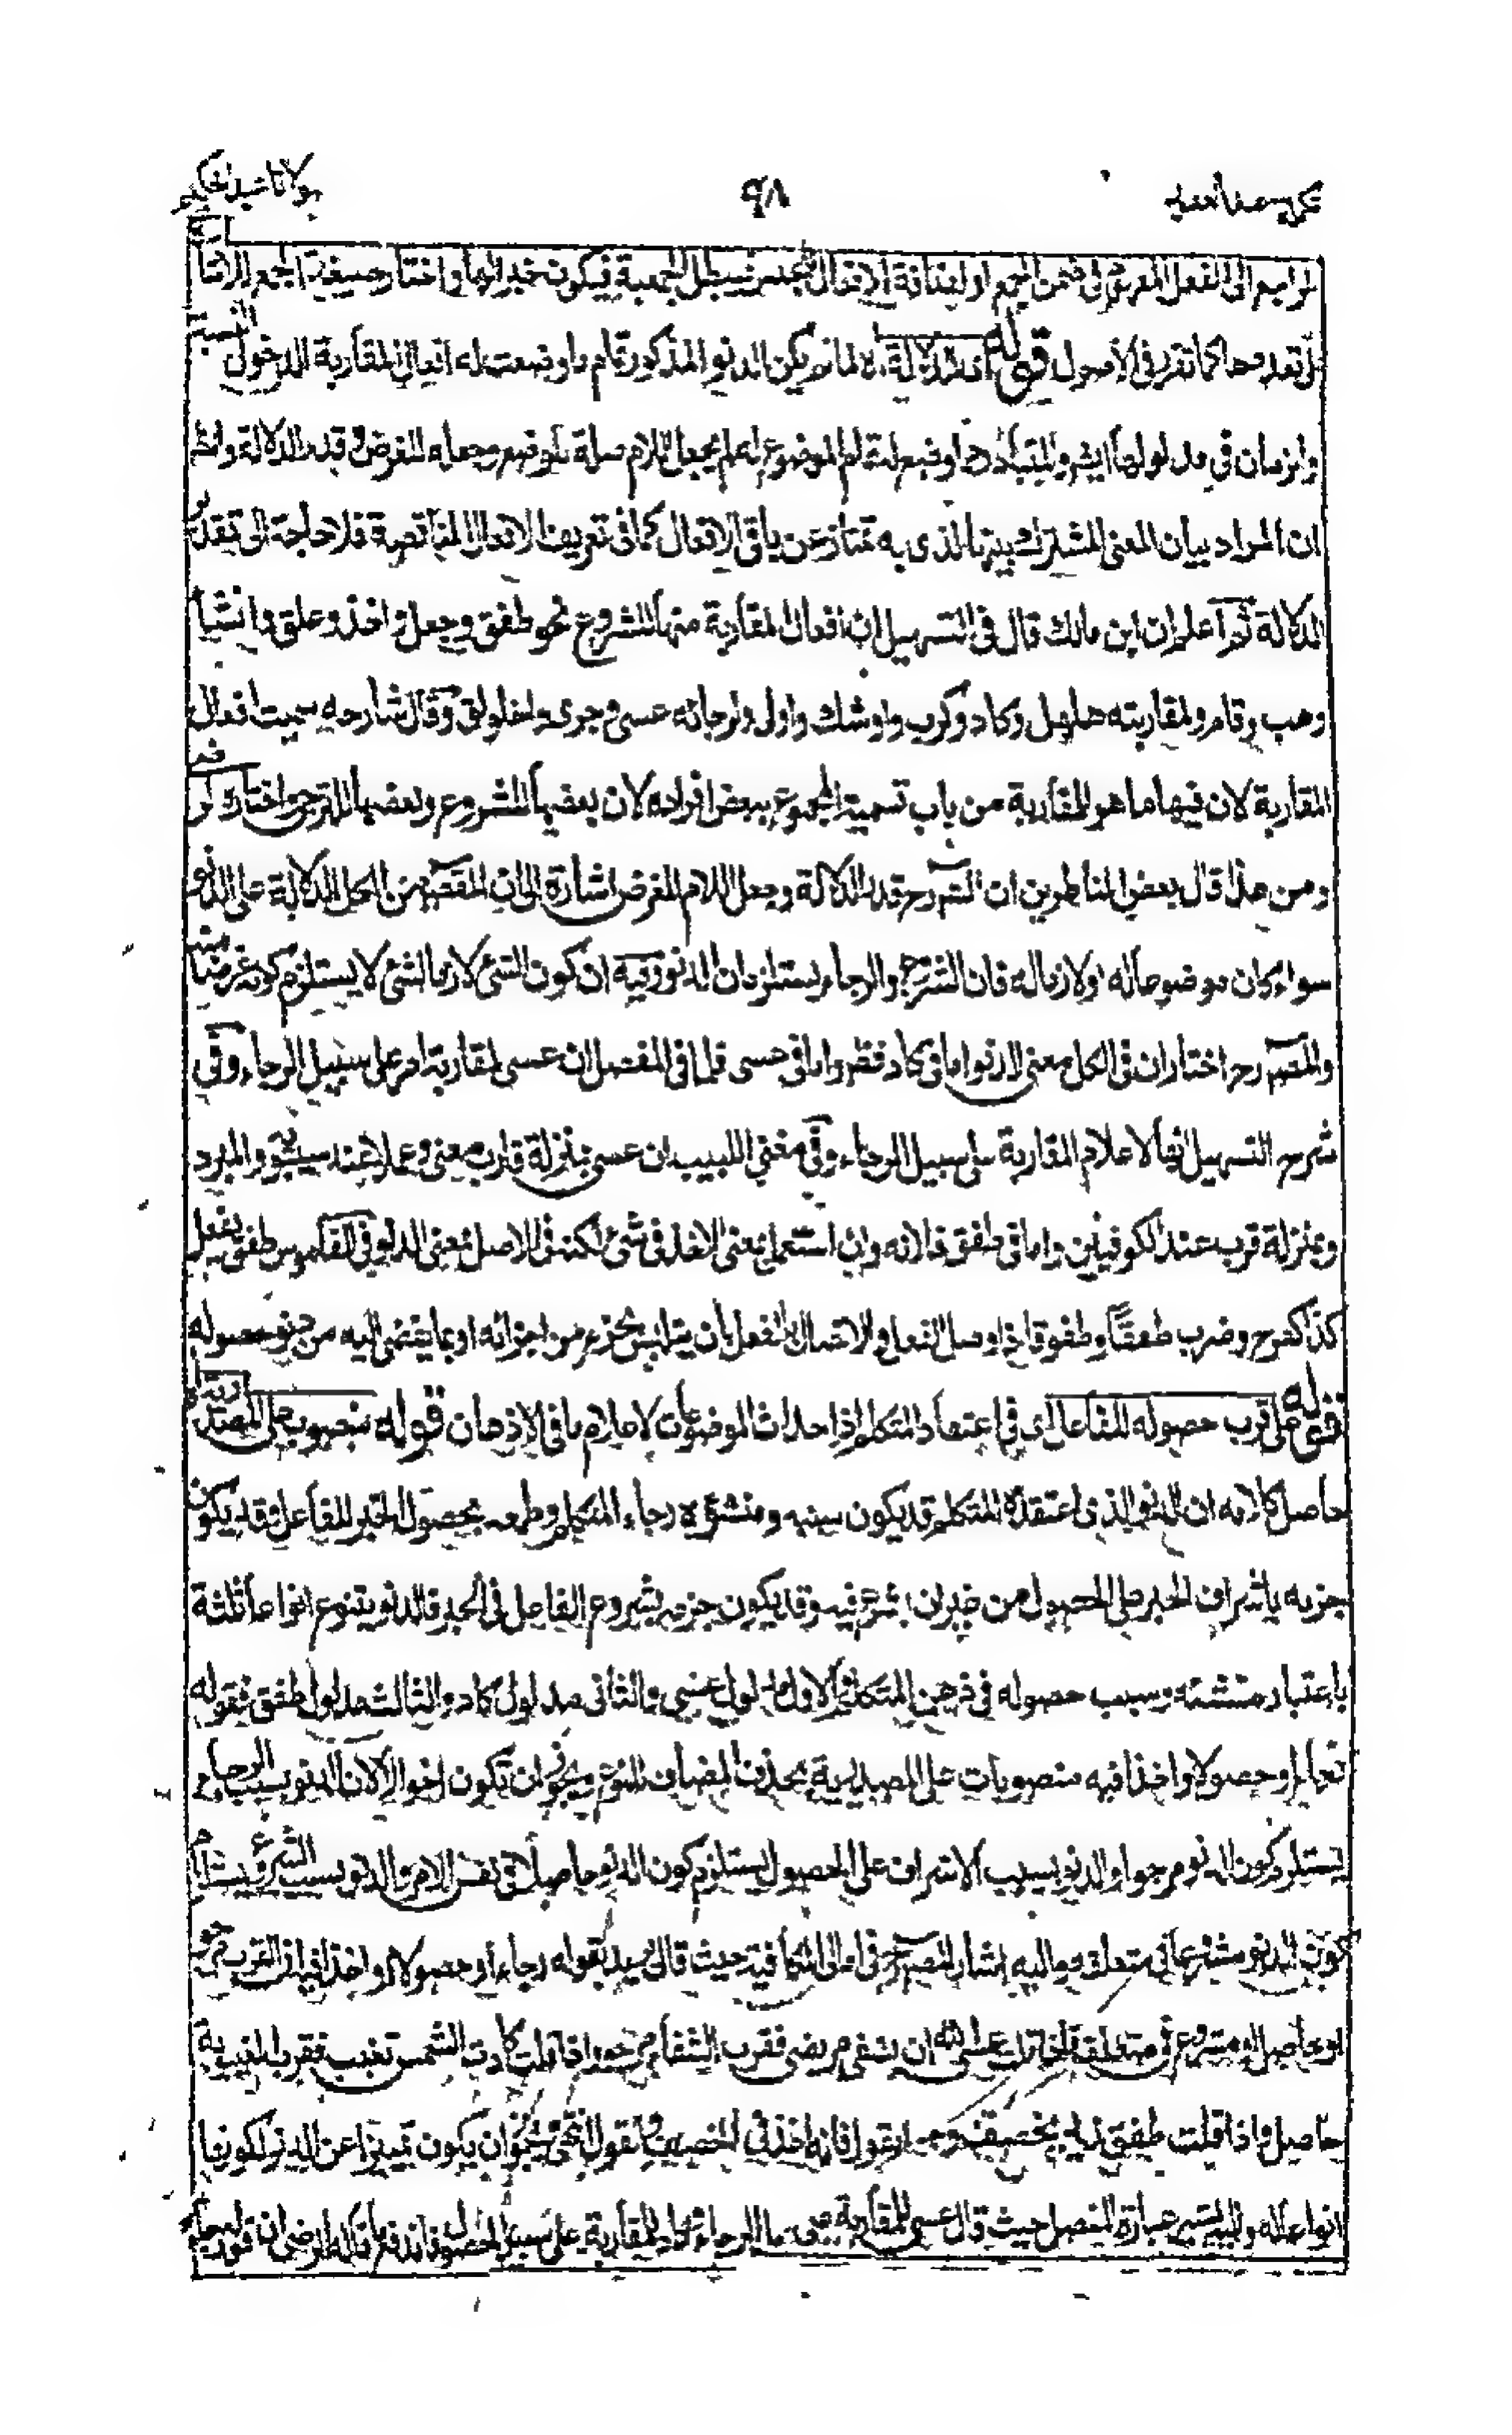 تكملة عبد الغفور
٩٨
مولانا عبد الحكيم
الراجع الى الفعل المعرف في ضمن الجمع او اضافة الافعال للجنس فيبطل الجمعية فيكون خبرا لها واختار صيغة الجمع للاشارة
الى تعددها كما تقرر في الاصول قوله اى للدلالة لما لم يكن الدنو المذكور تمام ما وضعت له افعال المقاربة لدخول النسبة
والزمان في مدلولها ايضا والمتبادر من وضعت له الموضوع له لم يجعل اللام صلة للوضع وجعله للغرض وقدر الدلالة والحق
ان المراد بيان المعنى المشترك بينها الذى به تمتاز عن باقى الافعال كما في تعريف الافعال الناقصة فلا حاجة الى تقدير
الدلالة ثم اعلم ان ابن مالك قال في التسهيل ان افعال المقاربة منها للشروع نحو طفق وجعل واخذ وعلق وانشأ
وهب وقام ولمقاربته هلهل وكاد وكرب واوشك واولى ولرجائه عسى وحرى واخلولق وقال شارحه سميت افعال
المقاربة لان فيها ما هو للمقاربة من باب تسمية المجموع ببعض افراده لان بعضها للشروع وبعضها للترجى واختاره
ومن هذا قال بعض الناظرين ان الشرح قدر الدلالة وجعل اللام للغرض اشارة الى ان المقصود من الكل الدلالة على الدنو
سواء كان موضوعا له او لازما له فان الشروع والرجاء يستلزمان الدنو وفيه ان كون الشئ لازما لشئ لا يستلزم كونه غرضا منه
والمصر رحـ اختار ان في الكل معنى الدنو اما في كاد فظ واما في عسى فلما في المفصل ان عسى لمقاربة امر على سبيل الرجاء وفي
شرح التسهيل انها لاعلام المقاربة على سبيل الرجاء وفي مغنى اللبيب ان عسى بمنزلة قارب معنى وعملا عند سيبويه والمبرد
وبمنزلة قرب عند الكوفيين واما في طفق فلانه وان استعمل بمعنى الاخذ في شئ لكنه في الاصل بمعنى الدنو في القاموس طفق يفعل
كذا كفرح وضرب طفقا وطفوقا اذا وصل الفعل والاتصال بالفعل بان يتلبس بجزء من اجزائه او بما يفضى اليه من دنو حصوله
قوله اى على قرب حصوله للفاعل اى في اعتقاد المتكلم اذ احداث الموضوعات لاعلام ما في الاذهان قوله منصوب على المصدرية
حاصل كلامه ان الدنو الذى اعتقده المتكلم قد يكون سببه ومنشؤه رجاء المتكلم وطمعه بحصول الخبر للفاعل وقد يكون
جزمه باشراف الخبر على الحصول من غير ان يشرع فيه وقد يكون جزمه بشروع الفاعل في الخبر فالدنو يتنوع انواعا ثلثة
باعتبار منشئه وسبب حصوله في ذهن المتكلم والاول مدلول عسى والثانى مدلول كاد والثالث مدلول طفق فقوله
رجاء او حصولا او اخذا فيه منصوبات على المصدرية بحذف المضاف للنوع ويجوز ان تكون احوالا لان الدنو بسبب الرجاء
يستلزم كون الدنو مرجوا والدنو بسبب الاشراف على الحصول يستلزم كون الدنو حاصلا في نفس الامر والدنو بسبب الشروع يستلزم
كون الدنو مشروعا في متعلقه واليه اشار المصر في امالى الكافية حيث قال يريد بقوله رجاء او حصولا او اخذا فيه ان القرب مرجو
او حاصل او مشروع في متعلقه فاذا قلت عسى الله ان يشفى مريضى فقرب الشفاء مرجو واذا قلت كادت الشمس تغيب فقرب المغيب
حاصل واذا قلت طفق زيد يخصف فانه اخذ في الخصف ويجوز ان يكون تمييزا عن الدنو لكونها
انواعا له واليه يشير عبارة المفصل حيث قال عسى لمقاربة الامر على سبيل الرجاء وكاد لمقاربته على سبيل الحصول فاندفع ما قاله الرضى ان قوله رجاء